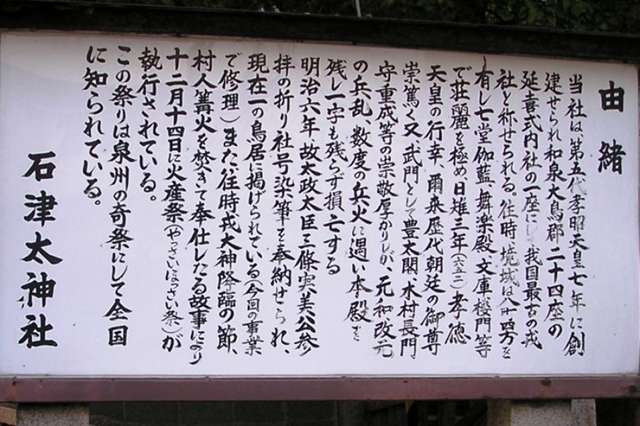 由緒
当社は第五代孝昭天皇七年に創
建せられ和泉大鳥郡二十四座の
延喜式内社の一座にして我国最古の戎
社と称せられる。往時境域は八丁四方を
有し七堂伽藍、舞楽殿、文庫楼門等
で荘麗を極め、白雉三年(六五二)孝徳
天皇の行幸、爾来歴代朝廷の御尊
崇篤く又、武門として豊太閤、木村長門
守重成等の崇敬厚かりしが、元和改元
の兵乱、数度の兵火に遇い本殿を
残し一宇も残らず損亡する
明治六年故太政大臣三條実美公参
拝の折り社号染筆を奉納せられ、
現在一の鳥居に掲げられている(今回の事業
で修理)また往時戎大神降臨の節、
村人篝火を焚きて奉仕したる故事により
十二月十四日に火産祭(やっさいほっさい祭)が
執行されている。
この祭りは泉州の奇祭にして全国
に知られている。
石津太神社